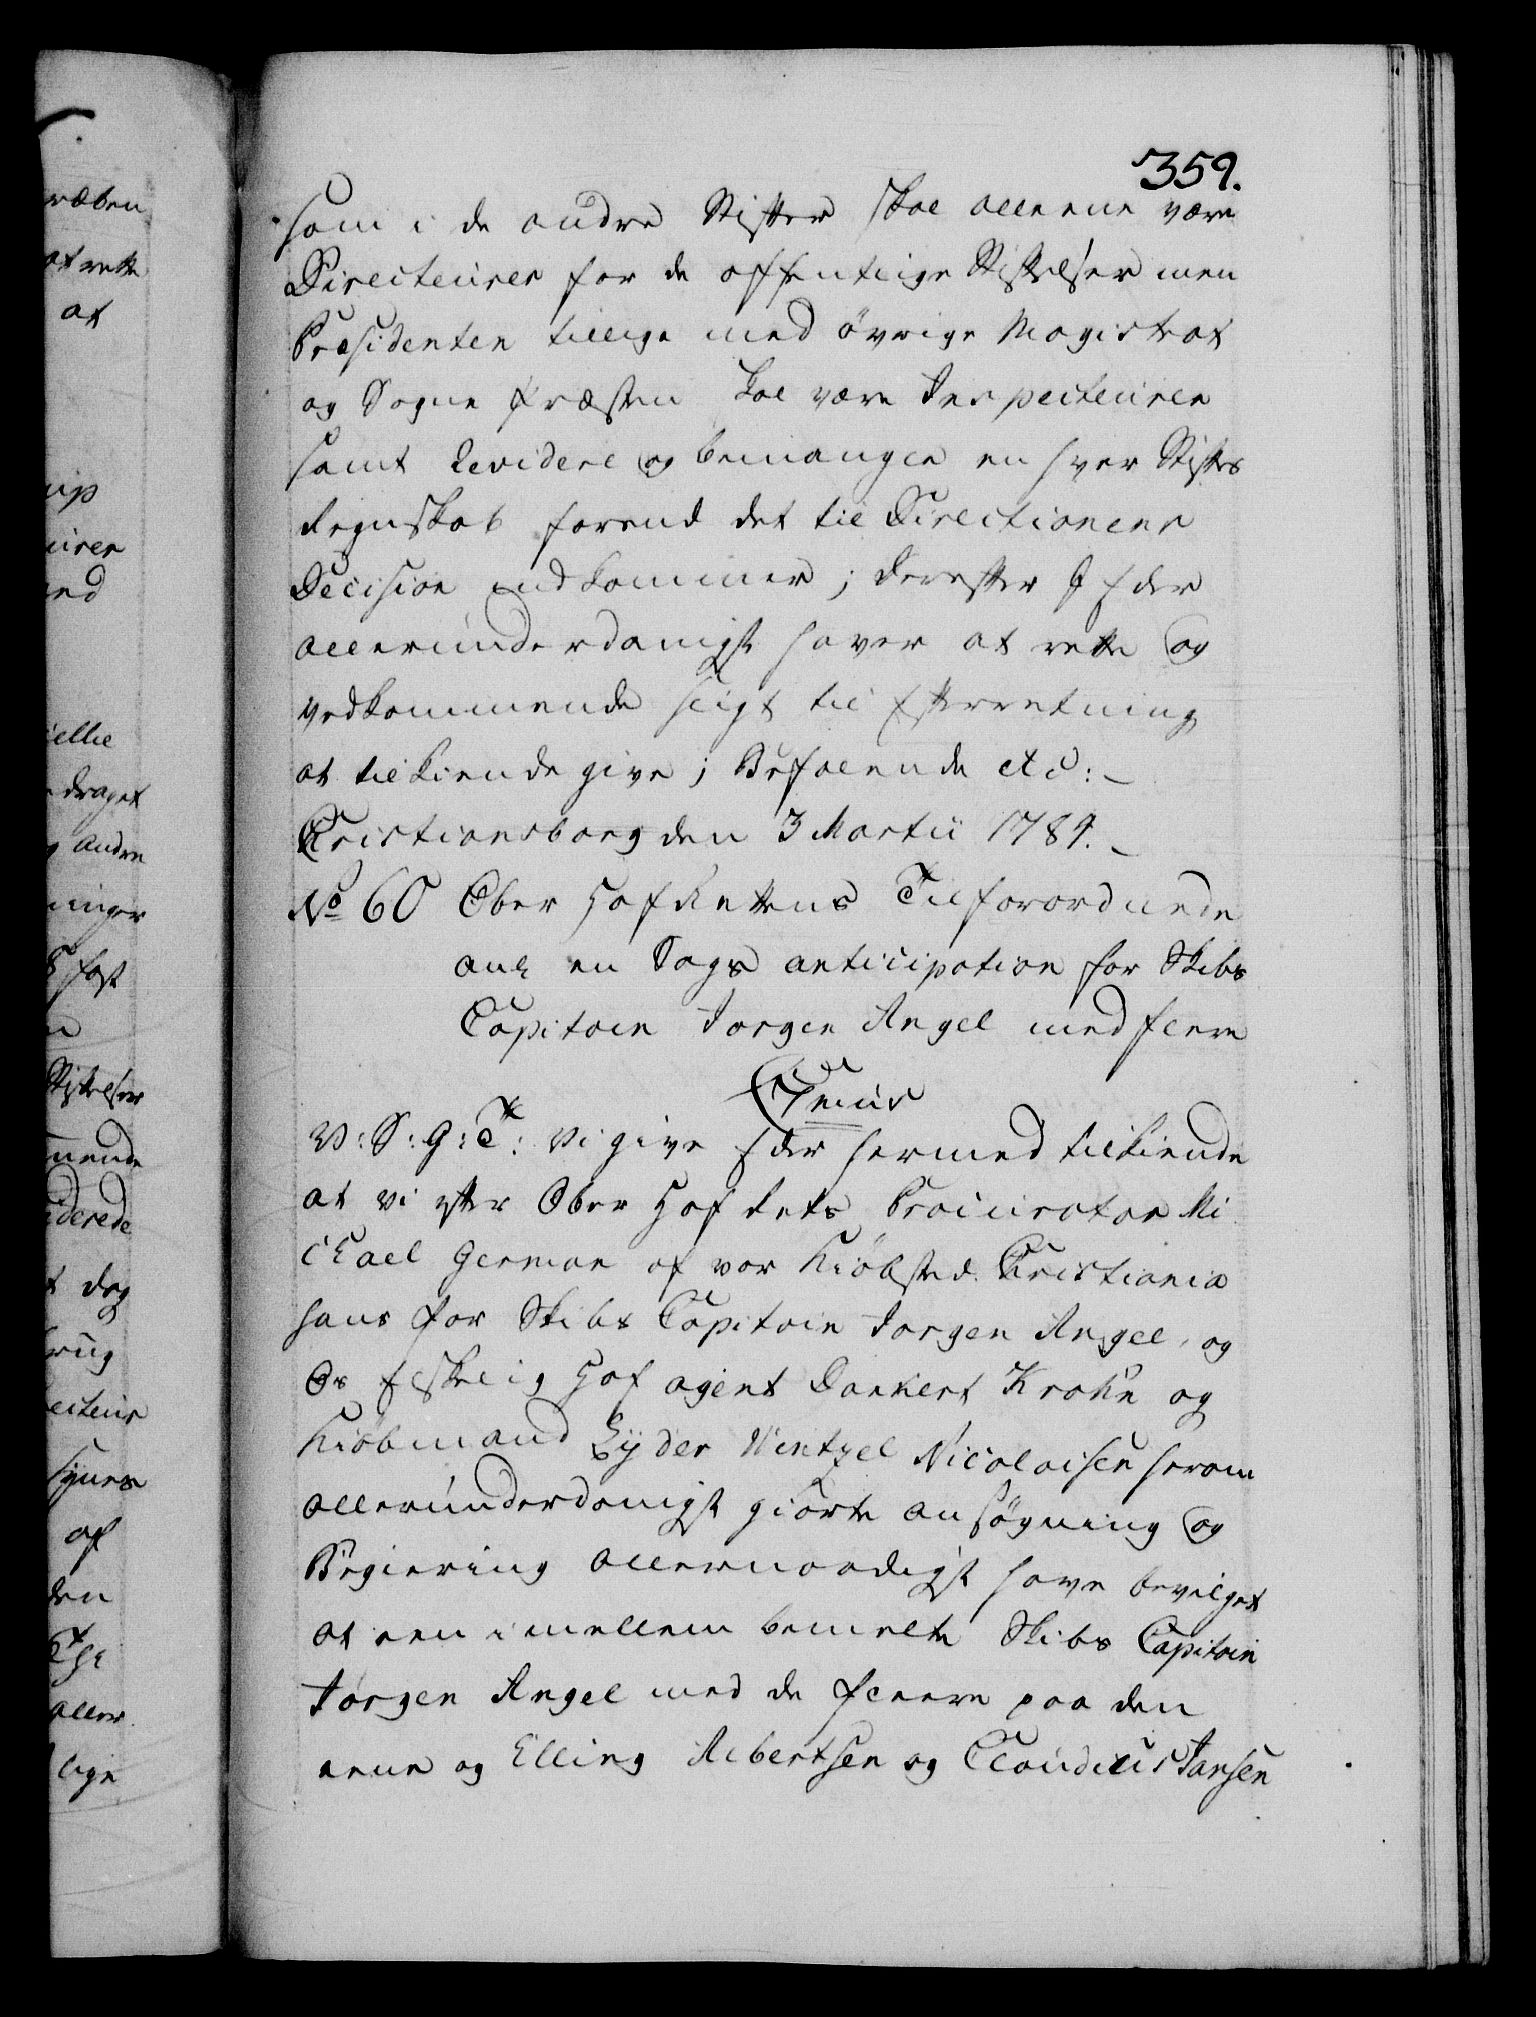 359.
som i de andre Stifter skal alleene være
Directeurer for de offentlige Stiftelser men
Præsidenten tillige med øvrige Magistrat
og Sogne Præsten skal være Inspecteurer
samt Revidere og bemangle en hver Stiftes
Regnskab forend det til Directionens
Decision indkommer; derefter I Eder
allerunderdanigst haver at rette og
vedkommende sligt til Efterretning
at tilkiende give; Befalende etc:
Christiansborg den 3 Martii 1784.
No 60 Ober Hof Rettens Tilforordnede
anl: en Sags anticipation for Skibs
Capitain Jørgen Angel med fleere
Genus
V: S: G: T: Vi give Eder hermed tilkiende
at vi efter Ober Hof Rets Procurator Mi
chael German af vor Kiøbsted Christiania
hans for Skibs Capitain Jørgen Angel, og
Os Elskelig Hof agent Dankert Krohn og
Kiøbmand Eyder Wentzel Nicolaisen herom
allerunderdanigst giorte ansøgning og
Begiering allernaadigst have bevilget
at een imellem bemelte Skibs Capitain
Jørgen Angel med de fleere paa den
eene og Elling Albertsen og Claudius Jansen